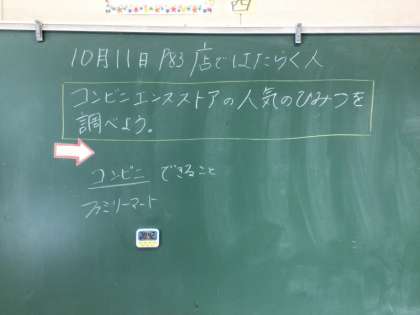 10月11日 P83 店ではたらく人
コンビニエンスストアの人気のひみつを
調べよう。
コンビニ できること
ファミリーマート